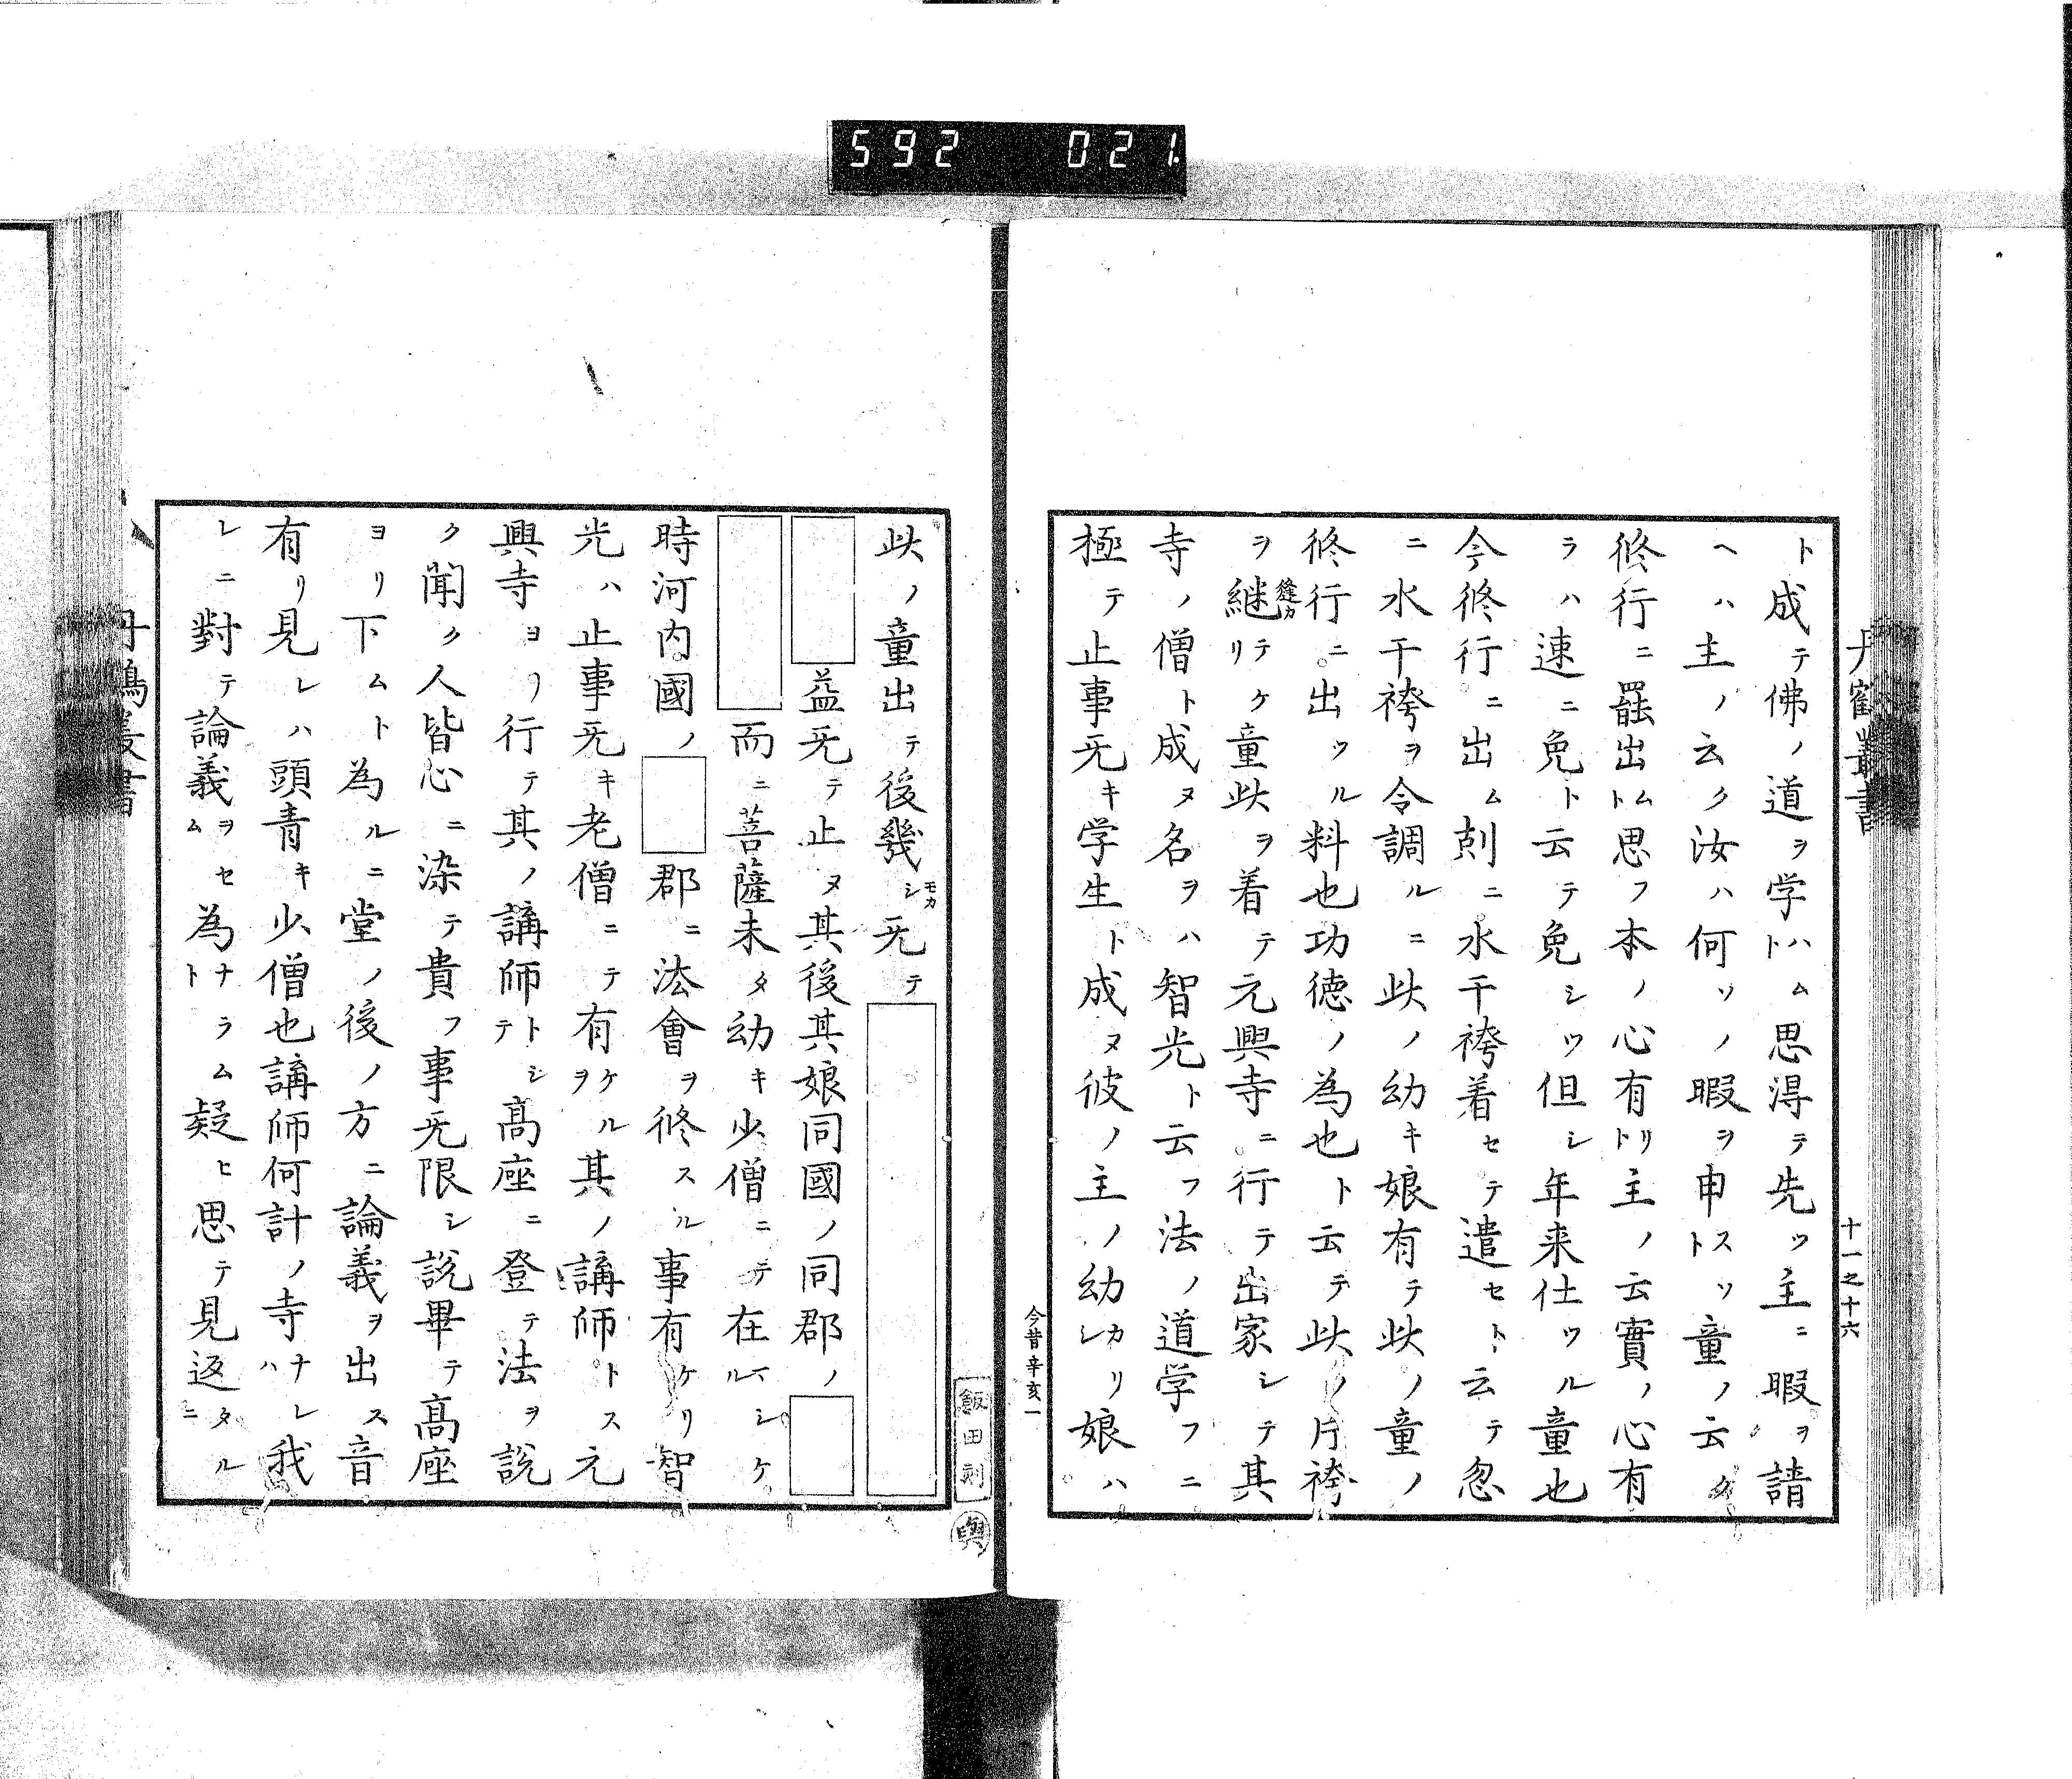 592 021.
丹鶴叢書
十一之十六
ト成テ佛ノ道ヲ学ハムト思得テ先ツ主ニ暇ヲ請
ヘハ主ノ云ク汝ハ何ソノ暇ヲ申スソト童ノ云ク
修行ニ罷出ムト思フ本ノ心有リト主ノ云實ノ心有
ラハ速ニ免ト云テ免シツ但シ年来仕ツル童也
今修行ニ出ム剋ニ水干袴着セテ遣セト云テ忽
ニ水干袴ヲ令調ルニ此ノ幼キ娘有テ此ノ童ノ
修行ニ出ツル料也功徳ノ為也ト云テ此ノ片袴
ヲ継縫カテケリ童此ヲ着テ元興寺ニ行テ出家シテ其
寺ノ僧ト成ヌ名ヲハ智光ト云フ法ノ道学フニ
極テ止事无キ学生ト成ヌ彼ノ主ノ幼カリシ娘ハ
今昔辛亥一
此ノ童出テ後幾シモカ无テ
益无テ止ヌ其後其娘同國ノ同郡ノ
而ニ菩薩未タ幼キ少僧ニテ在マシケル
時河内國ノ郡ニ法會ヲ修スル事有ケリ智
光ハ止事无キ老僧ニテ有ケルヲ其ノ講師トス元
興寺ヨリ行テ其ノ講師トシテ高座ニ登テ法ヲ説
ク聞ク人皆心ニ染テ貴フ事无限シ説畢テ高座
ヨリ下ムト為ルニ堂ノ後ノ方ニ論義ヲ出ス音
有リ見レハ頭青キ少僧也講師何計ノ寺ナレハ我
レニ對テ論義ヲセムト為ナラムト疑ヒ思テ見返タルニ
飯田刻
與
丹鶴叢書